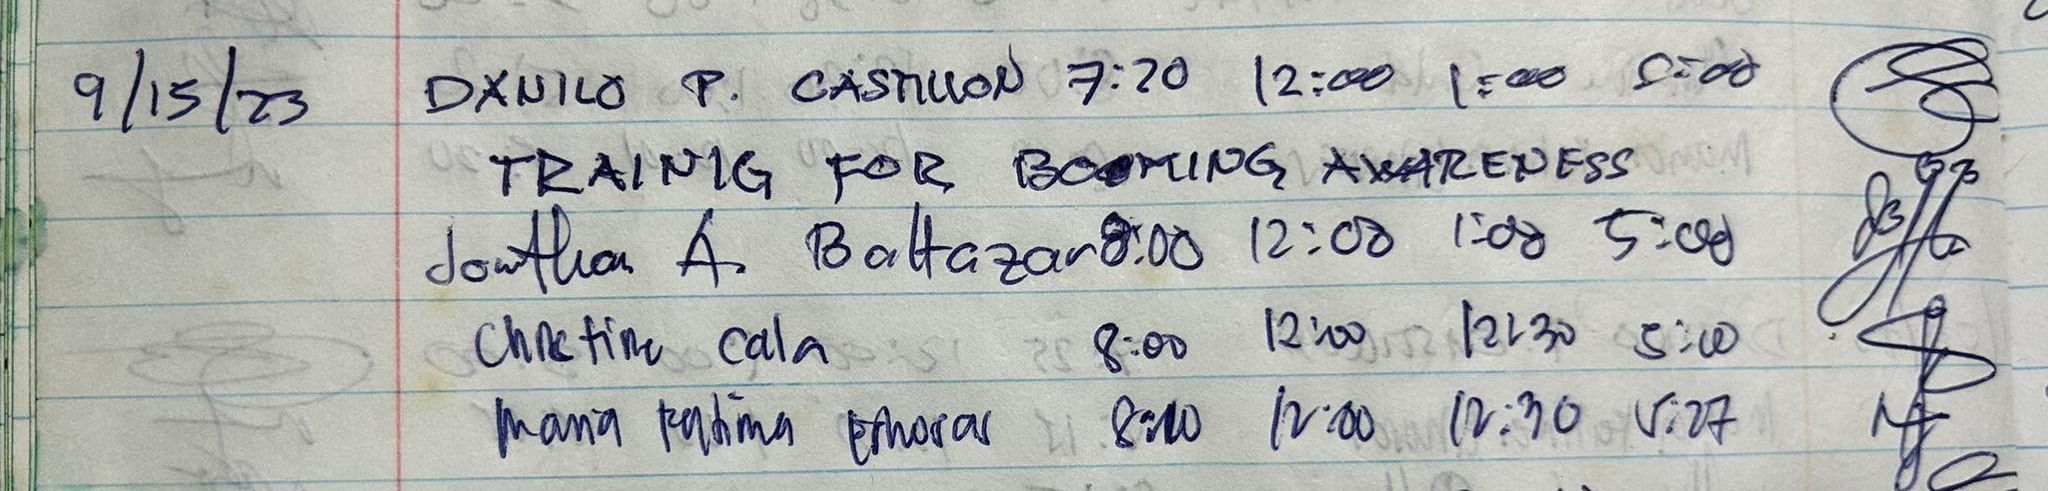 9/15/23 DANILO P. CASTILLON 7:20 12:00 1:00 5:00
TRAINIG FOR BOOMING AWARENESS
Jonathan A. Baltazar 8:00 12:00 1:00 5:00
Christine Cala 8:00 12:00 12:30 5:00
Maria Fatima 8:00 12:00 12:30 5:27